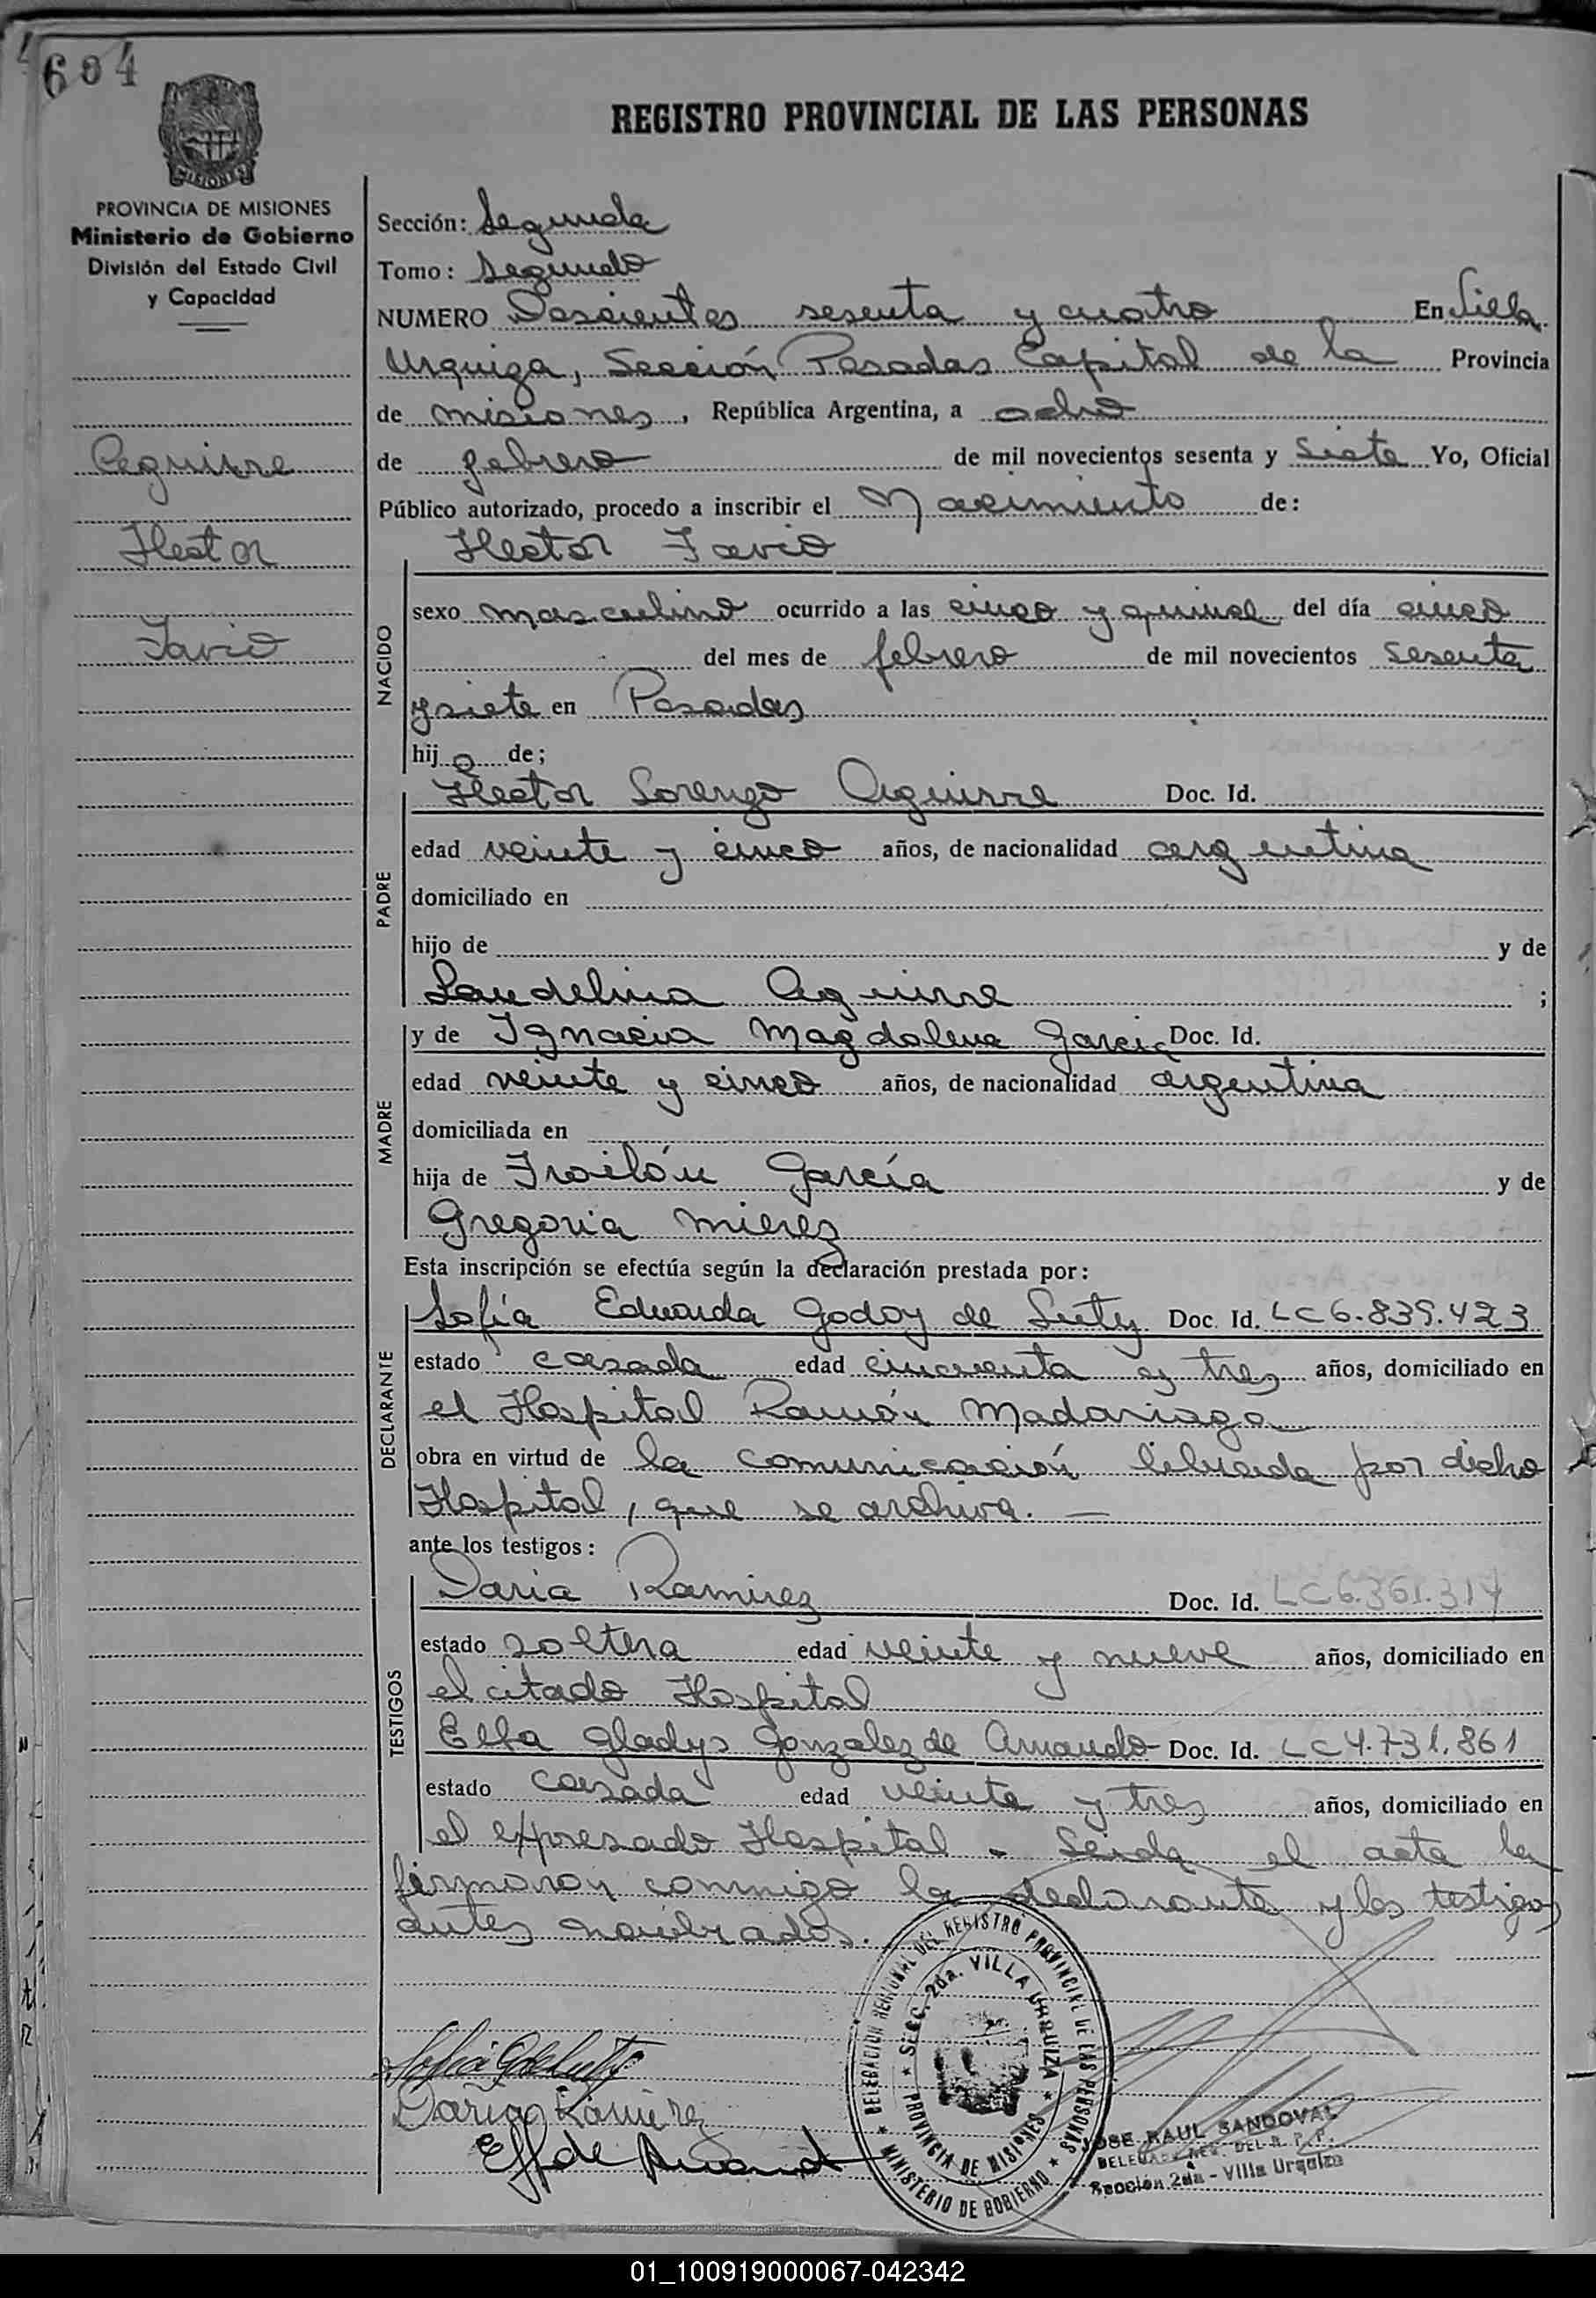 604
MISIONES
PROVINCIA DE MISIONES
Ministerio de Gobierno
División del Estado Civil
y Capacidad
Aguirre
Hector
Favio
REGISTRO PROVINCIAL DE LAS PERSONAS
Sección: Segunda
Tomo: Segundo
NUMERO Doscientos sesenta y cuatro En Villa
Urquiza, Sección Posadas Capital de la Provincia
de misiones, República Argentina, a ocho
de febrero de mil novecientos sesenta y siete Yo, Oficial
Público autorizado, procedo a inscribir el Nacimiento de:
Hector Favio
NACIDO
sexo masculino ocurrido a las cinco y quince del día cinco
del mes de febrero de mil novecientos sesenta
y siete en Posadas
hijo de;
PADRE
Hector Lorenzo Aguirre Doc. Id.
edad veinte y cinco años, de nacionalidad argentina
domiciliado en
hijo de y de
Laudelina Aguirre ;
MADRE
y de Ignacia Magdalena Garcia Doc. Id.
edad veinte y cinco años, de nacionalidad argentina
domiciliada en
hija de Froilán García y de
Gregoria Mierez
Esta inscripción se efectúa según la declaración prestada por:
DECLARANTE
Sofía Eduarda Godoy de Doc. Id. LC 6.839.423
estado casada edad cincuenta y tres años, domiciliado en
el Hospital Ramón Madariaga
obra en virtud de la comunicación librada por dicho
Hospital, que se archiva. —
ante los testigos:
TESTIGOS
Daria Ramirez Doc. Id. LC 6.361.314
estado soltera edad veinte y nueve años, domiciliado en
el citado Hospital
Elba Gladys Gonzalez de Doc. Id. LC 4.731.861
estado casada edad veinte y tres años, domiciliado en
el expresado Hospital - Leida el acta la
firmaron conmigo la declarante y los testigos
antes nombrados.
DELEGACION REGIONAL DEL REGISTRO PROVINCIAL DE LAS PERSONAS
★ MINISTERIO DE GOBIERNO ★
★ SECC. 2da. VILLA URQUIZA ★
PROVINCIA DE MISIONES
Daria Ramirez
JOSE RAUL SANDOVAL
Sección 2da - Villa Urquiza
01_100919000067-042342